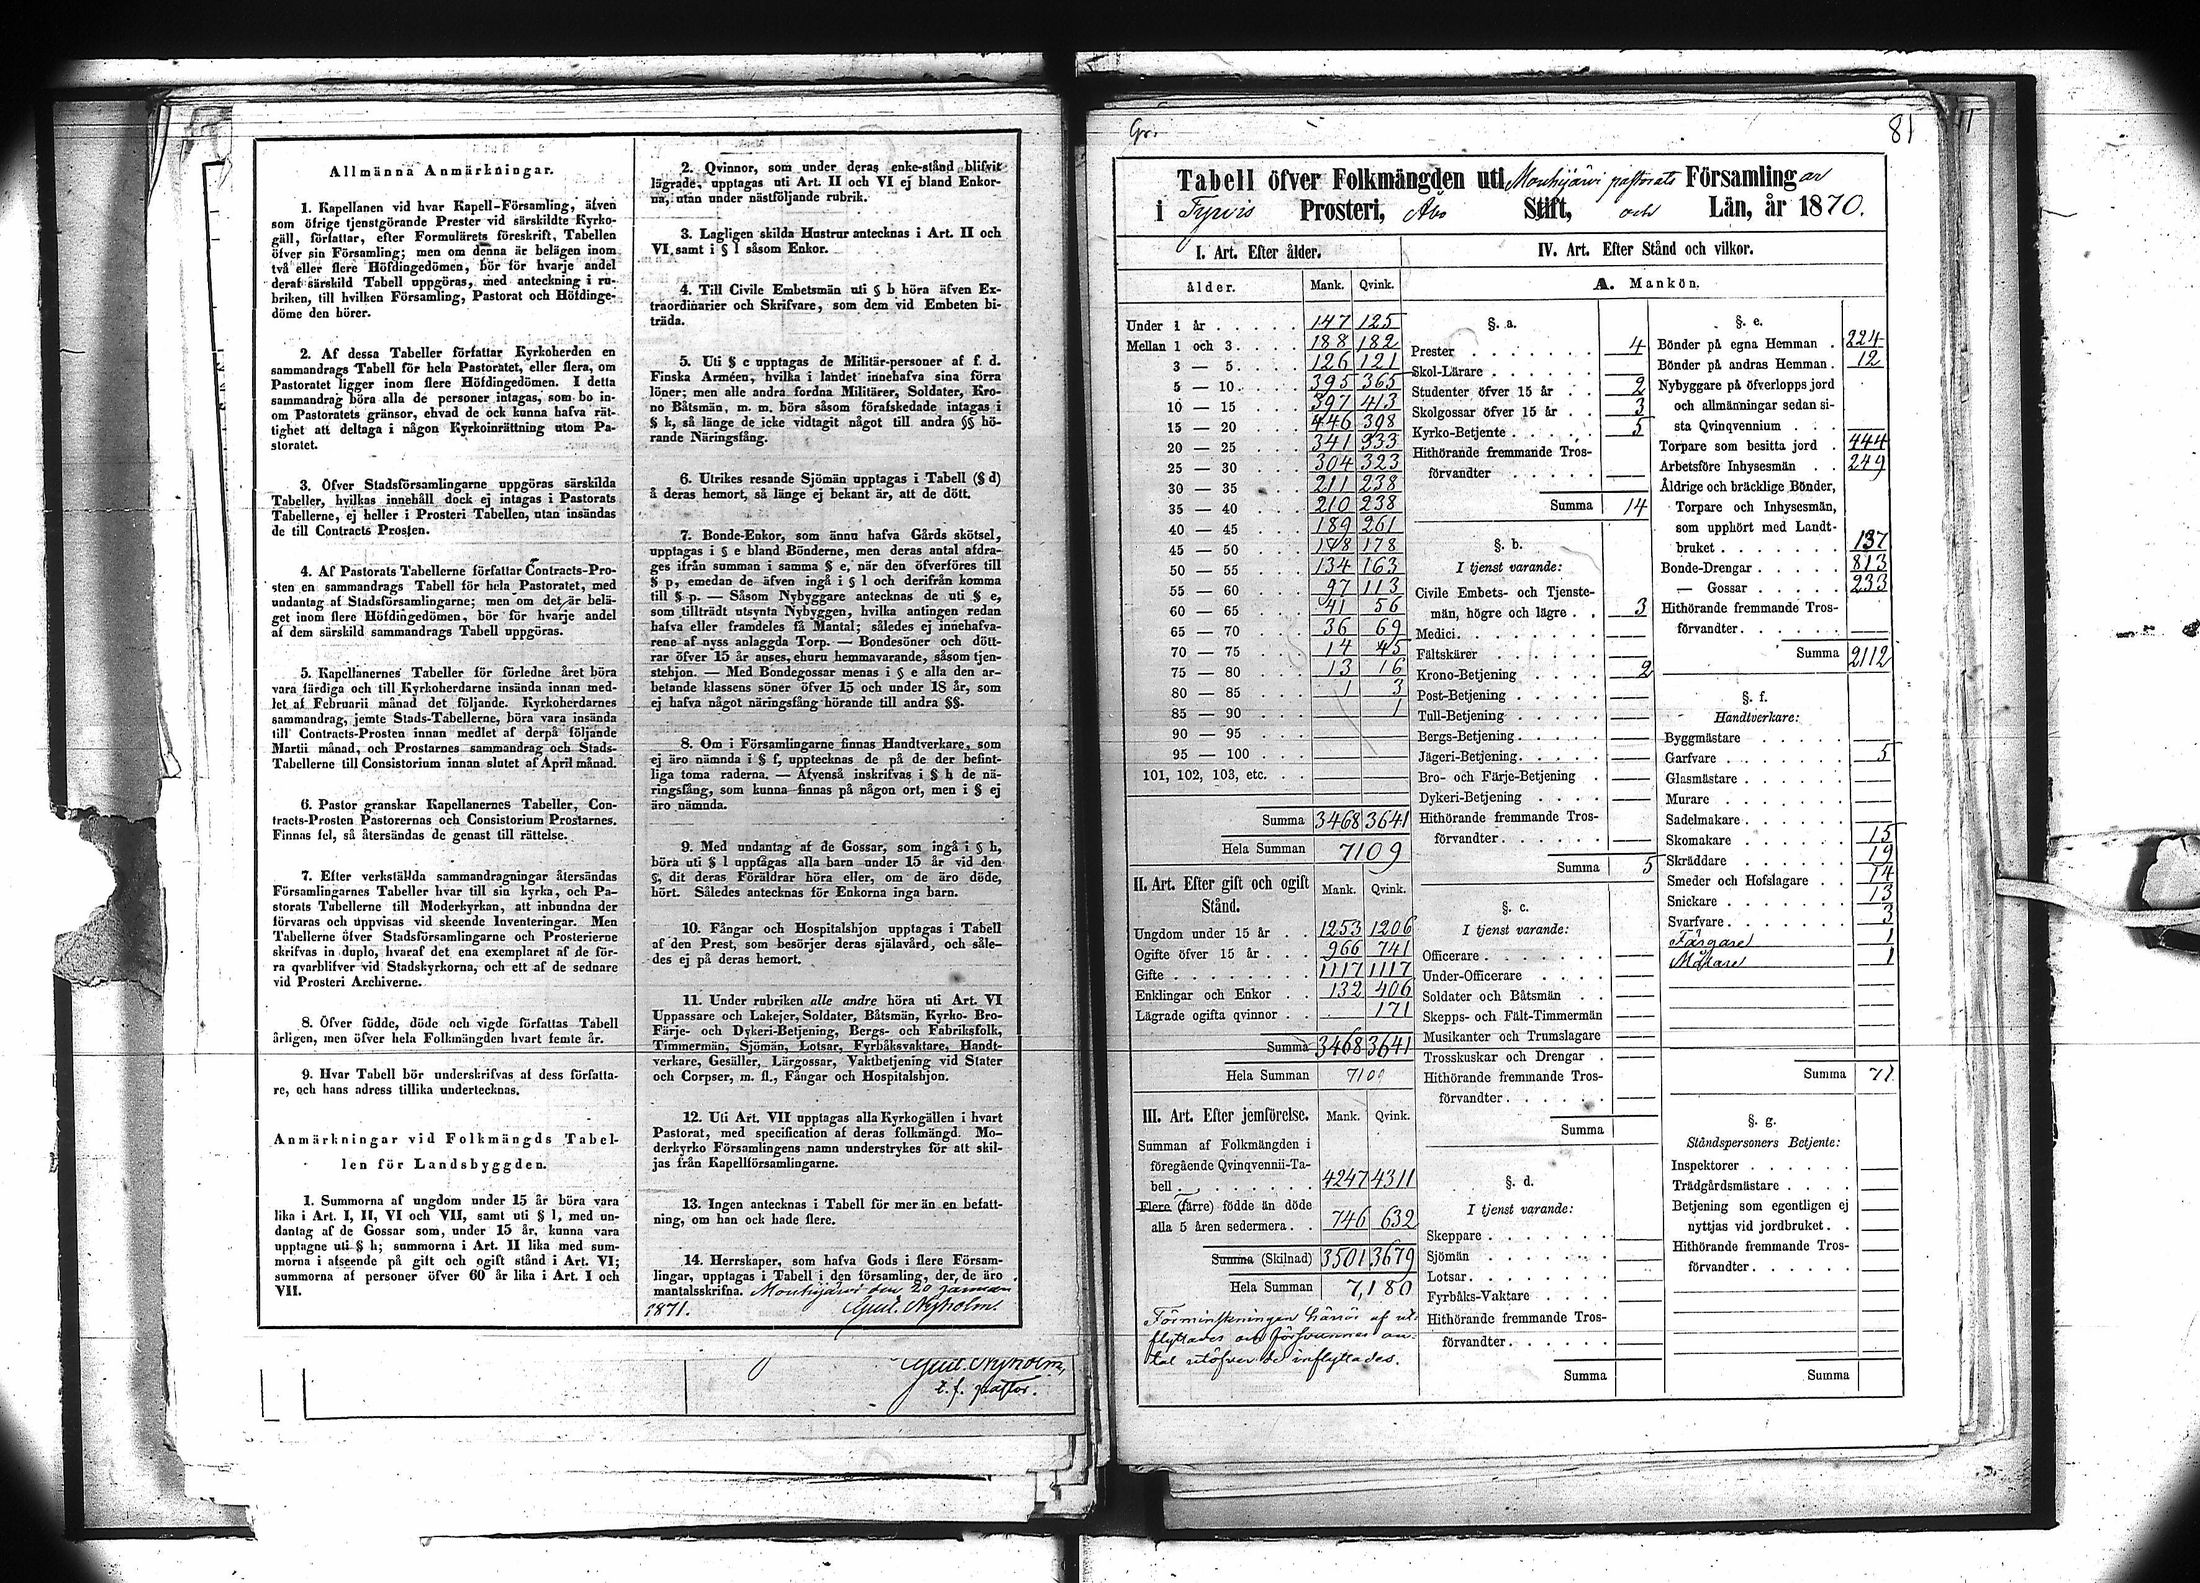 Allmänna Anmärkningar.
1. Kapellanen vid hvar Kapell-Församling, äfven
som öfrige tjenstgörande Prester vid särskildte Kyrko-
gäll, författar, efter Formulärets föreskrift, Tabellen
öfver sin Församling; men om denna är belägen inom
två eller flere Höfdingedömen, bör för hvarje andel
deraf särskild Tabell uppgöras, med anteckning i ru-
briken, till hvilken Församling, Pastorat och Höfdinge-
döme den hörer.
2. Af dessa Tabeller författar Kyrkoherden en
sammandrags Tabell för hela Pastoratet, eller flera, om
Pastoratet ligger inom flere Höfdingedömen. I detta
sammandrag böra alla de personer intagas, som bo in-
om Pastoratets gränsor, ehvad de ock kunna hafva rät-
tighet att deltaga i någon Kyrkoinrättning utom Pa-
storatet.
3. Öfver Stadsförsamlingarne uppgöras särskilda
Tabeller, hvilkas innehåll dock ej intages i Pastorats
Tabellerne, ej heller i Prosteri Tabellen, utan insändas
de till Contracts Prosten.
4. Af Pastorats Tabellerne författar Contracts-Pro-
sten en sammandrags Tabell för hela Pastoratet, med
undantag af Stadsförsamlingarne; men om det är belä-
get inom flere Höfdingedömen, bör för hvarje andel
af dem särskild sammandrags Tabell uppgöras.
5. Kapellanernes Tabeller för förledne året böra
vara färdiga och till Kyrkoherdarne insända innan med-
let af Februarii månad det följande. Kyrkoherdarnes
sammandrag, jemte Stads-Tabellerne, böra vara insända
till Contracts-Prosten innan medlet af derpå följande
Martii månad, och Prostarnes sammandrag och Stads-
Tabellerne till Consistorium innan slutet af April månad.
6. Pastor granskar Kapellanernes Tabeller, Con-
tracts-Prosten Pastorernas och Consistorium Prostarnes.
Finnas fel, så återsändas de genast till rättelse.
7. Efter verkställda sammandragningar återsändas
Församlingarnes Tabeller hvar till sin kyrka, och Pa-
storats Tabellerne till Moderkyrkan, att inbundna der
förvaras och uppvisas vid skeende Inventeringar. Men
Tabellerne öfver Stadsförsamlingarne och Prosterierne
skrifvas in duplo, hvaraf det ena exemplaret af de för-
ra qvarblifver vid Stadskyrkorna, och ett af de sednare
vid Prosteri Archiverne.
8. Öfver födde, döde och vigde författas Tabell
årligen, men öfver hela Folkmängden hvart femte år.
9. Hvar Tabell bör underskrifvas af dess författa-
re, och hans adress tillika undertecknas.
Anmärkningar vid Folkmängds Tabel-
len för Landsbyggden.
1. Summorna af ungdom under 15 år böra vara
lika i Art. I, II, VI och VII, samt uti § l, med un-
dantag af de Gossar som, under 15 år, kunna vara
upptagne uti § h; summorna i Art. II lika med sum-
morna i afseende på gift och ogift stånd i Art. VI;
summorna af personer öfver 60 år lika i Art. I och
VII.
2. Qvinnor, som under deras enke-stånd blifvit
lägrade, upptagas uti Art. II och VI ej bland Enkor-
na, utan under nästföljande rubrik.
3. Lagligen skilda Hustrur antecknas i Art. II och
VI, samt i § l såsom Enkor.
4. Till Civile Embetsmän uti § b höra äfven Ex-
traordinarier och Skrifvare, som dem vid Embeten bi-
träda.
5. Uti § c upptagas de Militär-personer af f. d.
Finska Arméen, hvilka i landet innehafva sina förra
löner; men alle andra fordna Militärer, Soldater, Kro-
no Båtsmän, m. m. böra såsom förafskedade intagas i
§ k, så länge de icke vidtagit något till andra §§ hö-
rande Näringsfång.
6. Utrikes resande Sjömän upptagas i Tabell (§ d)
å deras hemort, så länge ej bekant är, att de dött.
7. Bonde-Enkor, som ännu hafva Gårds skötsel,
upptagas i § e bland Bönderne, men deras antal afdra-
ges ifrån summan i samma § e, när den öfverföres till
§ p, emedan de äfven ingå i § l och derifrån komma
till § p. — Såsom Nybyggare antecknas de uti § e,
som tillträdt utsynta Nybyggen, hvilka antingen redan
hafva eller framdeles få Mantal; således ej innehafva-
rene af nyss anlaggda Torp. — Bondesöner och dött-
rar öfver 15 år anses, ehuru hemmavarande, såsom tjen-
stehjon. — Med Bondegossar menas i § e alla den ar-
betande klassens söner öfver 15 och under 18 år, som
ej hafva något näringsfång hörande till andra §§.
8. Om i Församlingarne finnas Handtverkare, som
ej äro nämnda i § f, upptecknas de på de der befint-
liga toma raderna. — Äfvenså inskrifvas i § h de nä-
ringsfång, som kunna finnas på någon ort, men i § ej
äro nämnda.
9. Med undantag af de Gossar, som ingå i § h,
böra uti § l upptagas alla barn under 15 år vid den
§, dit deras Föräldrar höra eller, om de äro döde,
hört. Således antecknas för Enkorna inga barn.
10. Fångar och Hospitalshjon upptagas i Tabell
af den Prest, som besörjer deras själavård, och såle-
des ej på deras hemort.
11. Under rubriken alle andre höra uti Art. VI
Uppassare och Lakejer, Soldater, Båtsmän, Kyrko- Bro-
Färje- och Dykeri-Betjening, Bergs- och Fabriksfolk,
Timmermän, Sjömän, Lotsar, Fyrbåksvaktare, Handt-
verkare, Gesäller, Lärgossar, Vaktbetjening vid Stater
och Corpser, m. fl., Fångar och Hospitalshjon.
12. Uti Art. VII upptagas alla Kyrkogällen i hvart
Pastorat, med specification af deras folkmängd. Mo-
derkyrko Församlingens namn understrykes för att skil-
jas från Kapellförsamlingarne.
13. Ingen antecknas i Tabell för mer än en befatt-
ning, om han ock hade flere.
14. Herrskaper, som hafva Gods i flere Försam-
lingar, upptagas i Tabell i den församling, der de äro
mantalsskrifna. Mouhijärvi den 20 januari
1871. Gust. Nyholm.
Gust. Nyholm,
t. f. pastor.
Gr. 81
Tabell öfver Folkmängden uti Mouhijärvi pastorats Församling ar
i Tyrvis Prosteri, Åbo Stift, och Län, år 1870.
I. Art. Efter ålder.
ålder. Mank. Qvink.
Under 1 år 147 125
Mellan 1 och 3 188 182
3 — 5 126 121
5 — 10 395 365
10 — 15 397 413
15 — 20 446 398
20 — 25 341 333
25 — 30 304 323
30 — 35 211 238
35 — 40 210 238
40 — 45 189 261
45 — 50 178 178
50 — 55 134 163
55 — 60 97 113
60 — 65 41 56
65 — 70 36 69
70 — 75 14 45
75 — 80 13 16
80 — 85 1 3
85 — 90 1
90 — 95
95 — 100
101, 102, 103, etc.
Summa 3468 3641
Hela Summan 7109
II. Art. Efter gift och ogift Stånd. Mank. Qvink.
Ungdom under 15 år 1253 1206
Ogifte öfver 15 år 966 741
Gifte 1117 1117
Enklingar och Enkor 132 406
Lägrade ogifta qvinnor 171
Summa 3468 3641
Hela Summan 7109
III. Art. Efter jemförelse. Mank. Qvink.
Summan af Folkmängden i
föregående Qvinqvennii-Ta-
bell 4247 4311
Flere (färre) födde än döde
alla 5 åren sedermera 746 632
Summa (Skilnad) 3501 3679
Hela Summan 7,180
Förminskningen härrör af ut-
flyttades och försvunnes an-
tal utöfver de inflyttades.
IV. Art. Efter Stånd och vilkor.
A. Mankön.
§. a.
Prester 4
Skol-Lärare
Studenter öfver 15 år 2
Skolgossar öfver 15 år 3
Kyrko-Betjente 5
Hithörande fremmande Tros-
förvandter
Summa 14
§. b.
I tjenst varande:
Civile Embets- och Tjenste-
män, högre och lägre 3
Medici
Fältskärer
Krono-Betjening 2
Post-Betjening
Tull-Betjening
Bergs-Betjening
Jägeri-Betjening
Bro- och Färje-Betjening
Dykeri-Betjening
Hithörande fremmande Tros-
förvandter
Summa 5
§. c.
I tjenst varande:
Officerare
Under-Officerare
Soldater och Båtsmän
Skepps- och Fält-Timmermän
Musikanter och Trumslagare
Trosskuskar och Drengar
Hithörande fremmande Tros-
förvandter
Summa
§. d.
I tjenst varande:
Skeppare
Sjömän
Lotsar
Fyrbåks-Vaktare
Hithörande fremmande Tros-
förvandter
Summa
§. e.
Bönder på egna Hemman 224
Bönder på andras Hemman 12
Nybyggare på öfverlopps jord
och allmänningar sedan si-
sta Qvinqvennium
Torpare som besitta jord 444
Arbetsföre Inhysesmän 249
Åldrige och bräcklige Bönder,
Torpare och Inhysesmän,
som upphört med Landt-
bruket 137
Bonde-Drengar 813
— Gossar 233
Hithörande fremmande Tros-
förvandter
Summa 2112
§. f.
Handtverkare:
Byggmästare
Garfvare 5
Glasmästare
Murare
Sadelmakare
Skomakare 15
Skräddare 19
Smeder och Hofslagare 14
Snickare 13
Svarfvare 3
Färgare 1
Målare 1
Summa 71
§. g.
Ståndspersoners Betjente:
Inspektorer
Trädgårdsmästare
Betjening som egentligen ej
nyttjas vid jordbruket
Hithörande fremmande Tros-
förvandter
Summa